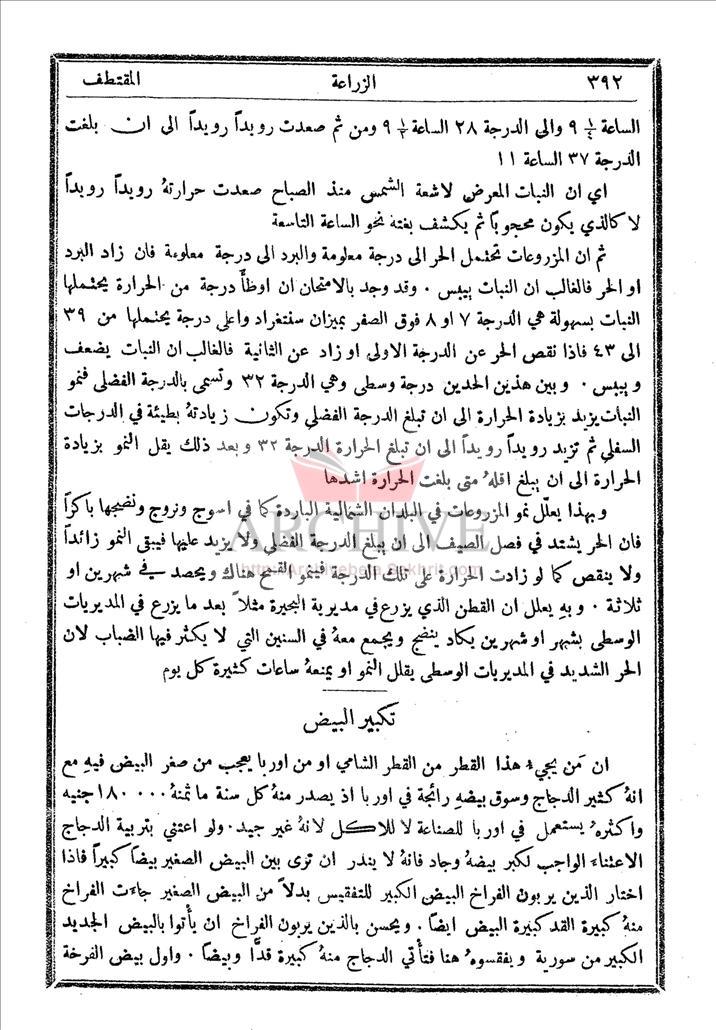 ٣٩٢ الزراعة المقتطف
الساعة ٩ ١/٤ والى الدرجة ٢٨ الساعة ٩ ١/٢ ومن ثم صعدت رويداً رويداً الى ان بلغت
الدرجة ٣٧ الساعة ١١
اي ان النبات المعرض لاشعة الشمس منذ الصباح صعدت حرارتهُ رويداً رويداً
لا كالذي يكون محجوباً ثم يكشف بغتة نحو الساعة التاسعة
ثم ان المزروعات تحتمل الحر الى درجة معلومة والبرد الى درجة معلومة فان زاد البرد
او الحر فالغالب ان النبات ييبس . وقد وجد بالامتحان ان اوطأ درجة من الحرارة يحتملها
النبات بسهولة هي الدرجة ٧ او ٨ فوق الصفر بميزان سنتغراد واعلى درجة يحتملها من ٣٩
الى ٤٣ فاذا نقص الحر عن الدرجة الاولى او زاد عن الثانية فالغالب ان النبات يضعف
وييبس . وبين هذين الحدين درجة وسطى وهي الدرجة ٣٢ وتسمى بالدرجة الفضلى فنمو
النبات يزيد بزيادة الحرارة الى ان تبلغ الدرجة الفضلى وتكون زيادتهُ بطيئة في الدرجات
السفلى ثم تزيد رويداً رويداً الى ان تبلغ الحرارة الدرجة ٣٢ وبعد ذلك يقل النمو بزيادة
الحرارة الى ان يبلغ اقلهُ متى بلغت الحرارة اشدها
وبهذا يعلّل نمو المزروعات في البلدان الشمالية الباردة كما في اسوج ونروج ونضجها باكراً
فان الحر يشتد في فصل الصيف الى ان يبلغ الدرجة الفضلى ولا يزيد عليها فيبقى النمو زائداً
ولا ينقص كما لو زادت الحرارة على تلك الدرجة فينمو القمح هناك ويحصد في شهرين او
ثلاثة . وبهِ يعلل ان القطن الذي يزرع في مديرية البحيرة مثلاً بعد ما يزرع في المديريات
الوسطى بشهر او شهرين يكاد ينضج ويجمع معهُ في السنين التي لا يكثر فيها الضباب لان
الحر الشديد في المديريات الوسطى يقلل النمو او يمنعهُ ساعات كثيرة كل يوم
تكبير البيض
ان مَن يجيءُ هذا القطر من القطر الشامي او من اوربا يعجب من صغر البيض فيهِ مع
انهُ كثير الدجاج وسوق بيضهِ رائجة في اوربا اذ يصدر منهُ كل سنة ما ثمنهُ ١٨٠٠٠٠ جنيه
واكثرهُ يستعمل في اوربا للصناعة لا للاكل لانهُ غير جيد . ولو اعتني بتربية الدجاج
الاعتناء الواجب لكبر بيضهُ وجاد فانهُ لا يندر ان ترى بين البيض الصغير بيضاً كبيراً فاذا
اختار الذين يربون الفراخ البيض الكبير للتفقيس بدلاً من البيض الصغير جاءت الفراخ
منهُ كبيرة القد كبيرة البيض ايضاً . ويحسن بالذين يربون الفراخ ان يأتوا بالبيض الجديد
الكبير من سورية ويفقسوهُ هنا فتأتي الدجاج منهُ كبيرة قدًّا وبيضاً . واول بيض الفرخة
ARCHIVE
http://Archivebeta.Sakhrit.com